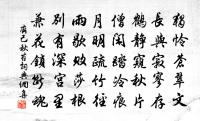 獨憐蒼翠文
長與寂寥存
鶴靜窺秋片
僧閒踏冷痕
月明疏竹徑
雨歇敗莎根
別有深宮裏
兼花鎖斷魂